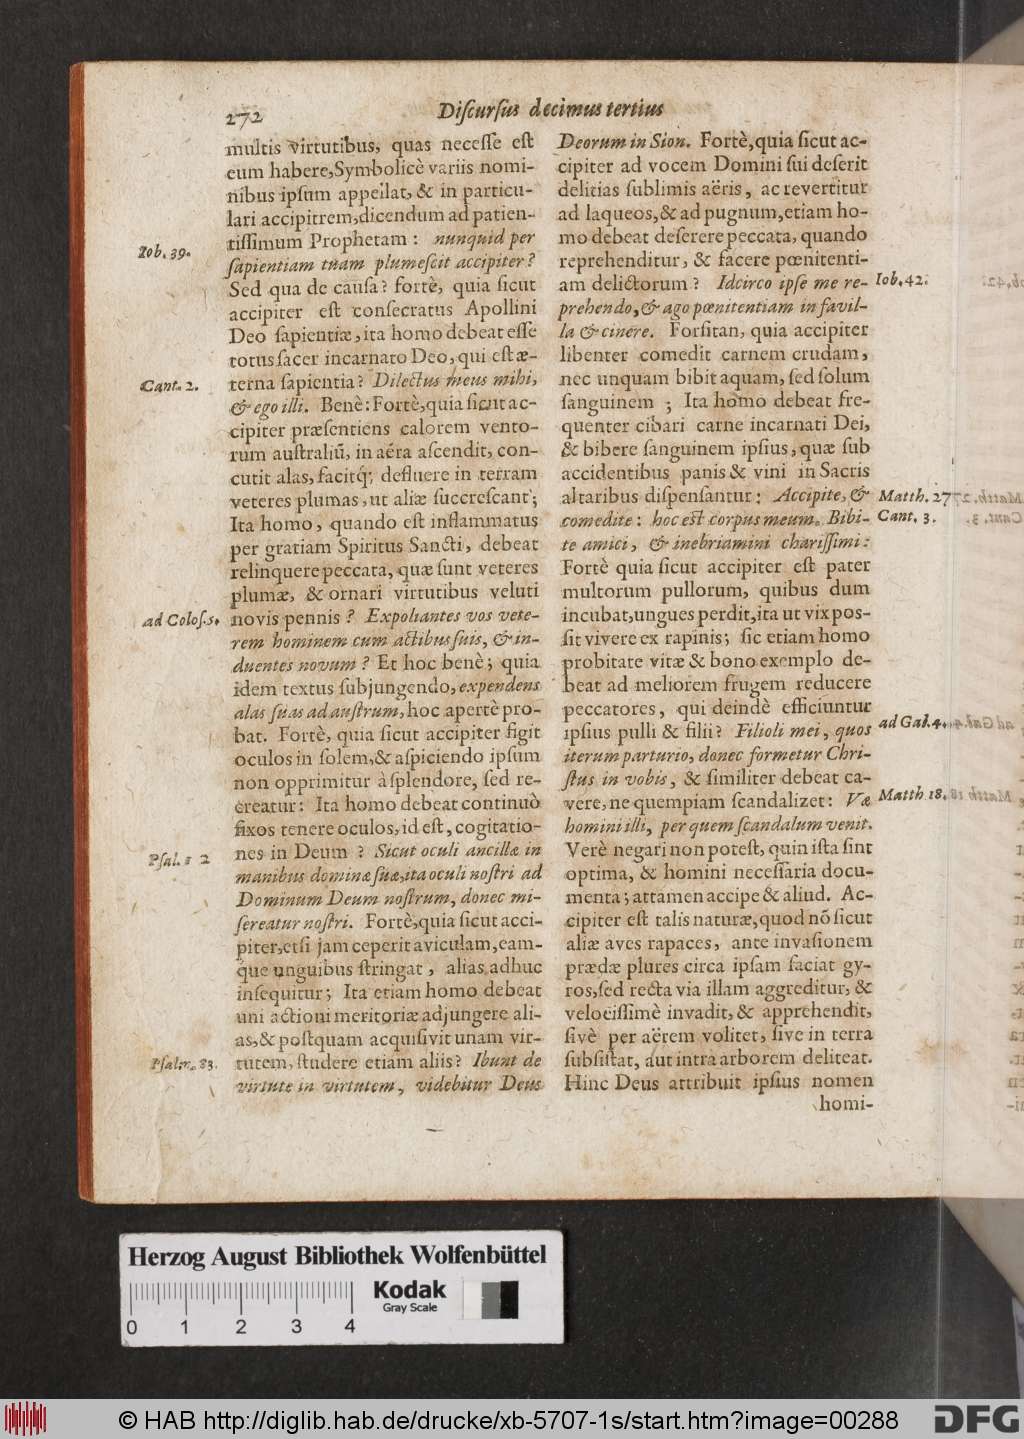 272
Diſcurſus decimus tertius
multis virtutibus, quas neceſſe eſt
eum habere, Symbolicè variis nomi-
nibus ipſum appellat, & in particu-
lari accipitrem, dicendum ad patien-
tiſſimum Prophetam: nunquid per
Iob. 39.
ſapientiam tuam plumeſcit accipiter?
Sed qua de cauſa? fortè, quia ſicut
accipiter eſt conſecratus Apollini
Deo ſapientiæ, ita homo debeat eſſe
totus ſacer incarnato Deo, qui eſt æ-
terna ſapientia? Dilectus meus mihi,
Cant. 2.
& ego illi. Benè: Fortè, quia ſicut ac-
cipiter præſentiens calorem vento-
rum auſtraliũ, in aëra aſcendit, con-
cutit alas, facitq́; defluere in terram
veteres plumas, ut aliæ ſuccreſcant;
Ita homo, quando eſt inflammatus
per gratiam Spiritus Sancti, debeat
relinquere peccata, quæ ſunt veteres
plumæ, & ornari virtutibus veluti
novis pennis? Expoliantes vos vete-
ad Coloſ. 5.
rem hominem cum actibus ſuis, & in-
duentes novum? Et hoc benè; quia
idem textus ſubjungendo, expendens
alas ſuas ad auſtrum, hoc apertè pro-
bat. Fortè, quia ſicut accipiter figit
oculos in ſolem, & aſpiciendo ipſum
non opprimitur à ſplendore, ſed re-
creatur: Ita homo debeat continuò
fixos tenere oculos, id eſt, cogitatio-
nes in Deum? Sicut oculi ancillæ in
Pſal. 2
manibus dominæ ſuæ, ita oculi noſtri ad
Dominum Deum noſtrum, donec mi-
ſereatur noſtri. Fortè, quia ſicut acci-
piter, etſi jam ceperit aviculam, eam-
que unguibus ſtringat, alias adhuc
inſequitur; Ita etiam homo debeat
uni actioni meritoriæ adjungere ali-
as, & poſtquam acquiſivit unam vir-
tutem, ſtudere etiam aliis? Ibunt de
Pſalm. 83.
virtute in virtutem, videbitur Deus
Deorum in Sion. Fortè, quia ſicut ac-
cipiter ad vocem Domini ſui deſerit
delitias ſublimis aëris, ac revertitur
ad laqueos, & ad pugnum, etiam ho-
mo debeat deſerere peccata, quando
reprehenditur, & facere pœnitenti-
am delictorum? Idcirco ipſe me re-
Iob. 42.
prehendo, & ago pœnitentiam in favil-
la & cinere. Forſitan, quia accipiter
libenter comedit carnem crudam,
nec unquam bibit aquam, ſed ſolum
ſanguinem; Ita homo debeat fre-
quenter cibari carne incarnati Dei,
& bibere ſanguinem ipſius, quæ ſub
accidentibus panis & vini in Sacris
altaribus diſpenſantur: Accipite, &
Matth. 27
comedite: hoc eſt corpus meum. Bibi-
Cant. 3.
te amici, & inebriamini chariſſimi:
Fortè quia ſicut accipiter eſt pater
multorum pullorum, quibus dum
incubat, ungues perdit, ita ut vix poſ-
ſit vivere ex rapinis; ſic etiam homo
probitate vitæ & bono exemplo de-
beat ad meliorem frugem reducere
peccatores, qui deindè efficiuntur
ipſius pulli & filii? Filioli mei, quos
ad Gal. 4.
iterum parturio, donec formetur Chri-
ſtus in vobis, & ſimiliter debeat ca-
vere, ne quempiam ſcandalizet: Væ
Matth 18.
homini illi, per quem ſcandalum venit.
Verè negari non poteſt, quin iſta ſint
optima, & homini neceſſaria docu-
menta; attamen accipe & aliud. Ac-
cipiter eſt talis naturæ, quod nõ ſicut
aliæ aves rapaces, ante invaſionem
prædæ plures circa ipſam faciat gy-
ros, ſed recta via illam aggreditur, &
velociſſimè invadit, & apprehendit,
ſivè per aërem volitet, ſive in terra
ſubſiſtat, aut intra arborem deliteat.
Hinc Deus attribuit ipſius nomen
homi-
Herzog August Bibliothek Wolfenbüttel
Kodak
Gray Scale
0 1 2 3 4
© HAB http://diglib.hab.de/drucke/xb-5707-1s/start.htm?image=00288
DFG